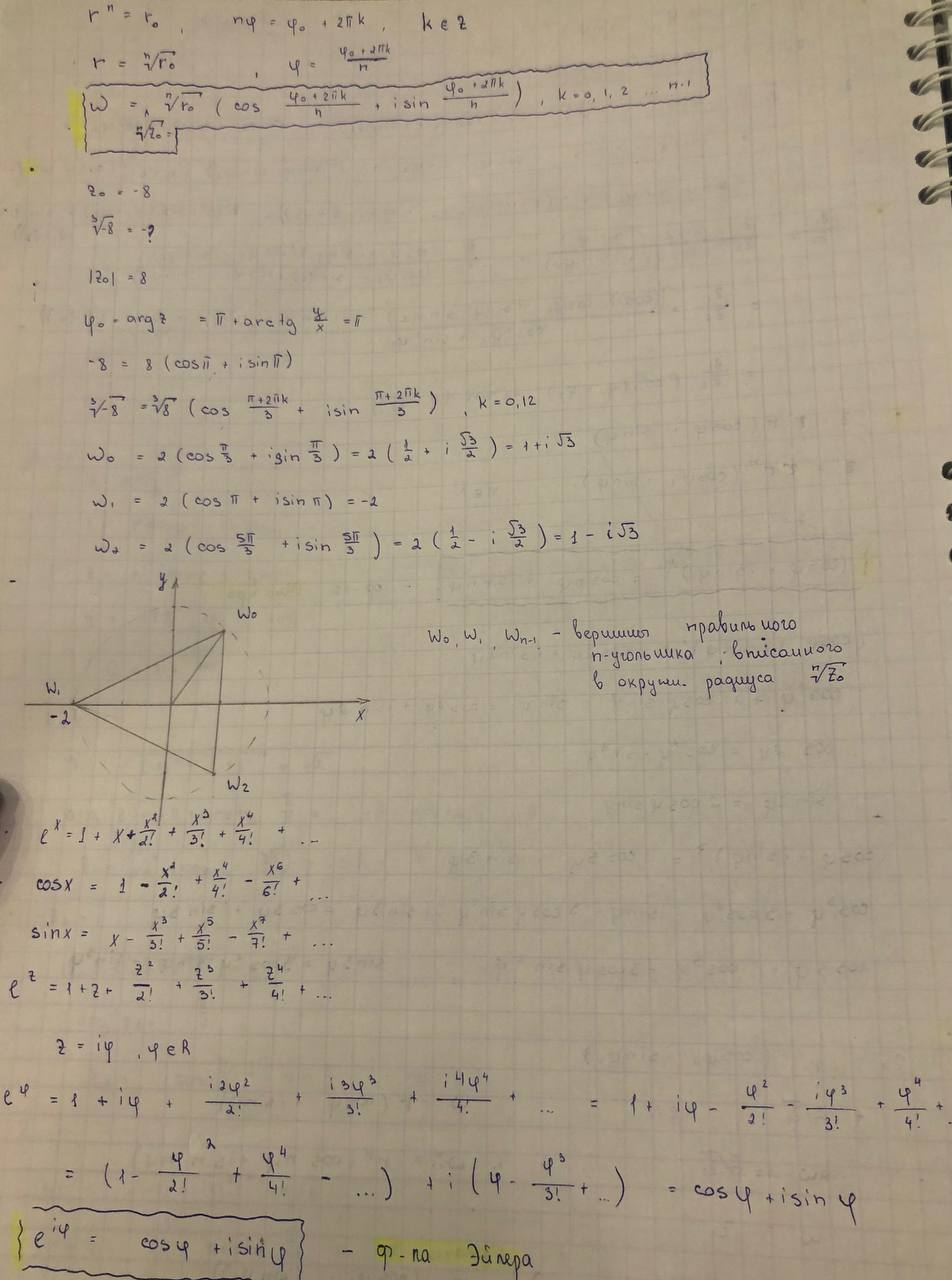 rⁿ = r₀ , nφ = φ₀ + 2πk , k ∈ Z
r = ⁿ√r₀ , φ = (φ₀ + 2πk)/n
w = ⁿ√r₀ ( cos (φ₀ + 2πk)/n + i sin (φ₀ + 2πk)/n ) , k = 0, 1, 2 ... n-1
ⁿ√z₀ =
z₀ = -8
³√-8 = -?
|z₀| = 8
φ₀ = arg z = π + arctg y/x = π
-8 = 8 (cosπ + i sinπ)
³√-8 = ³√8 (cos (π+2πk)/3 + i sin (π+2πk)/3 ) , k = 0,12
w₀ = 2 (cos π/3 + i sin π/3 ) = 2 ( 1/2 + i √3/2 ) = 1 + i √3
w₁ = 2 (cos π + i sin π) = -2
w₂ = 2 (cos 5π/3 + i sin 5π/3 ) = 2 ( 1/2 - i √3/2 ) = 1 - i√3
y
w₀
w₀, w₁, wₙ₋₁ - вершины правильного
n-угольника, вписанного
в окружн. радиуса ⁿ√z₀
w₁
-2
x
w₂
eˣ = 1 + x + x²/2! + x³/3! + x⁴/4! + ...
cosx = 1 - x²/2! + x⁴/4! - x⁶/6! + ...
sinx = x - x³/3! + x⁵/5! - x⁷/7! + ...
e^z = 1 + z + z²/2! + z³/3! + z⁴/4! + ...
z = iφ , φ ∈ R
e^φ = 1 + iφ + i2φ²/2! + i3φ³/3! + i4φ⁴/4! + ... = 1 + iφ - φ²/2! - iφ³/3! + φ⁴/4! + ..
= (1 - φ²/2! + φ⁴/4! - ...) + i (φ - φ³/3! + ...) = cosφ + i sin φ
e^iφ = cosφ + i sinφ - ф-ла Эйлера